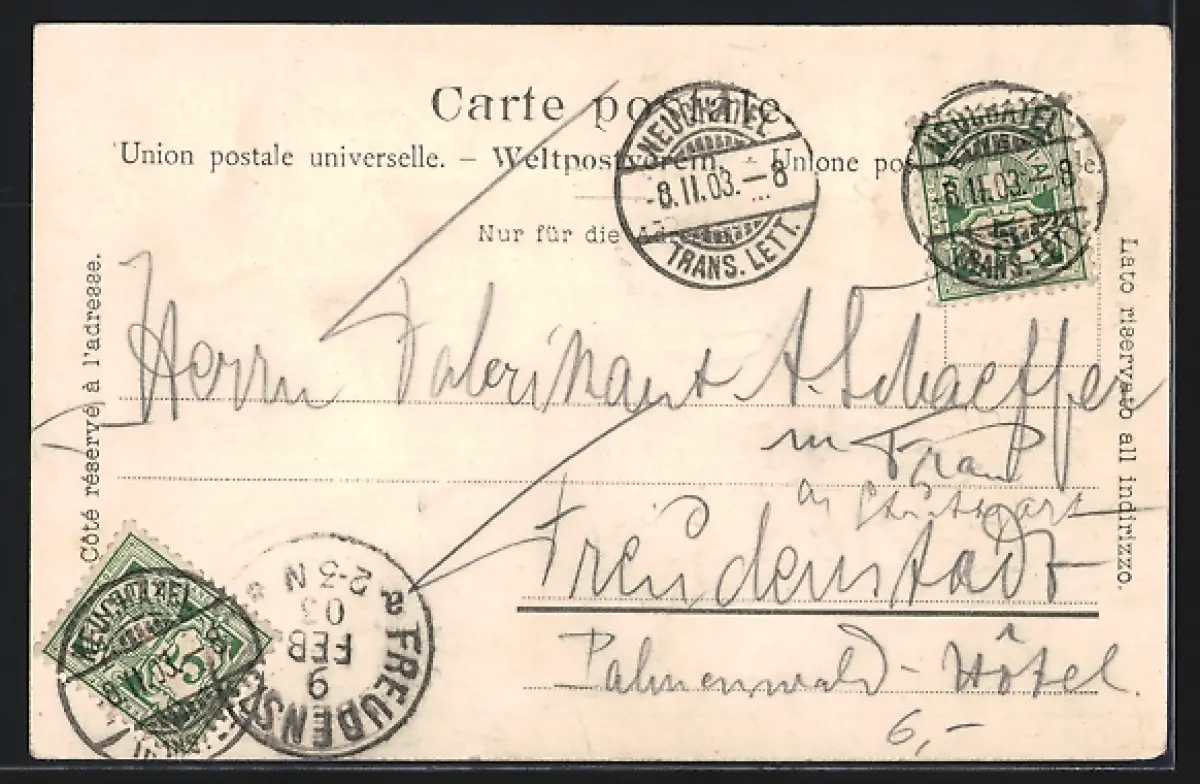 Carte postale.
Union postale universelle. – Weltpostverein. – Unione postale
Nur für die Adresse
Côté réservé à l'adresse.
Lato riservato all indirizzo.
NEUCHATEL
-8.II.03.-8
TRANS. LETT.
NEUCHATEL
8.II.03.-8
TRANS. LETT.
5
Herrn Fabrikant A. Schaeffer
m Frau
a/ Stuttgart
Freudenstadt
Palmenwald-Hôtel.
6,-
NEUCHATEL
8.II.03.-8
5
FREUDENST
9
FEB
03
2-3 N
a